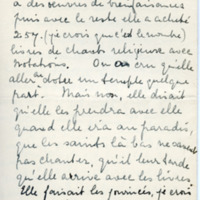 à des oeuvres de bienfaisances
puis avec le reste elle a acheté
257. (je crois que c'est le nombre)
livres de chants religieux avec
notations. On a cru qu'elle
allait doter un temple quelque
part. Mais non, elle disait
qu'elle les prendra avec elle
quand elle ira au paradis,
que les saints là bas ne savent
pas chanter, qu'il leur tarde
qu'elle arrive avec les livres
Elle faisait les journées, je crois